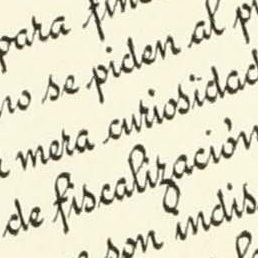 para fine
no se piden al p
mera curiosidad
de fiscalización
son indis